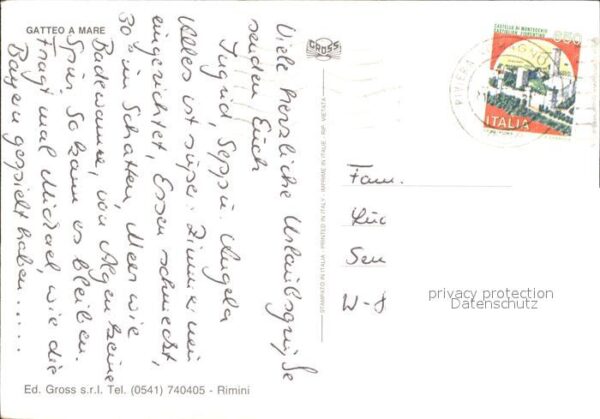 GATTEO A MARE
Viele herzliche Urlaubsgrüße
senden Euch
Ingrid, Sepp u. Angela
Alles ist super: Zimmer neu
eingerichtet, Essen schmeckt,
30° im Schatten, Meer wie
Badewanne, von Algen keine
Spur. So kann es bleiben.
Fragt mal Michael, wie die
Bayern gespielt haben......
GROSS
STAMPATO IN ITALIA - PRINTED IN ITALY - IMPRIMÉ EN ITALIE - RIP. VIETATA
CASTELLO DI MONTECCHIO
CASTIGLION FIORENTINO
650
ITALIA
RIVIERA
Fam.
W-8
privacy protection
Datenschutz
Ed. Gross s.r.l. Tel. (0541) 740405 - Rimini